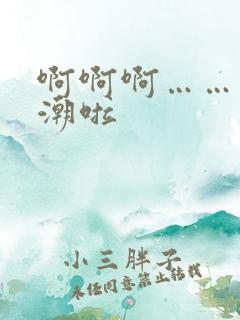 啊啊啊……
潮啦
小三胖子
未经同意禁止转载